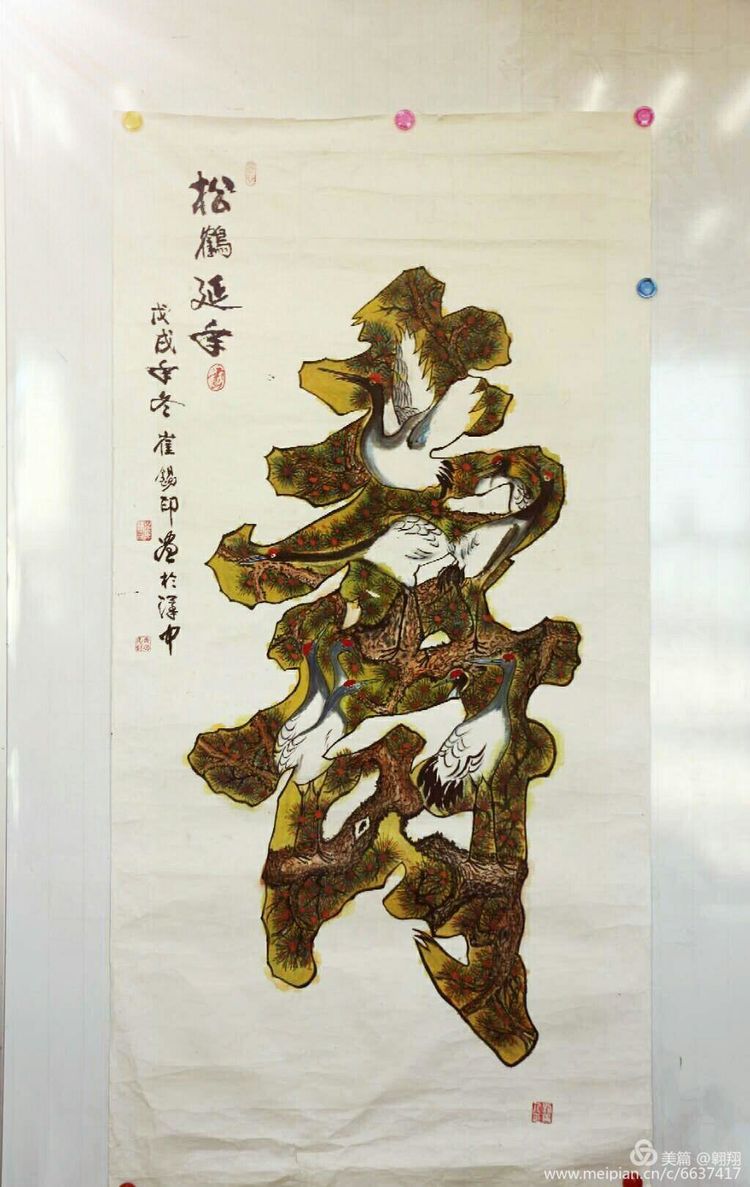 松鹤延年
戊戌年冬崔锡印画於漢中
美篇 @翱翔
www.meipian.cn/c/6637417